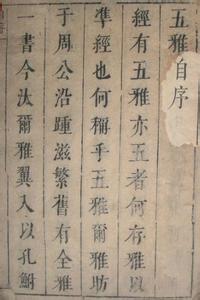 五雅自序
經有五雅亦五者何存雅以
準經也何稱乎五雅爾雅昉
于周公沿踵滋繁舊有全雅
一書今汰爾雅翼入以孔鮒